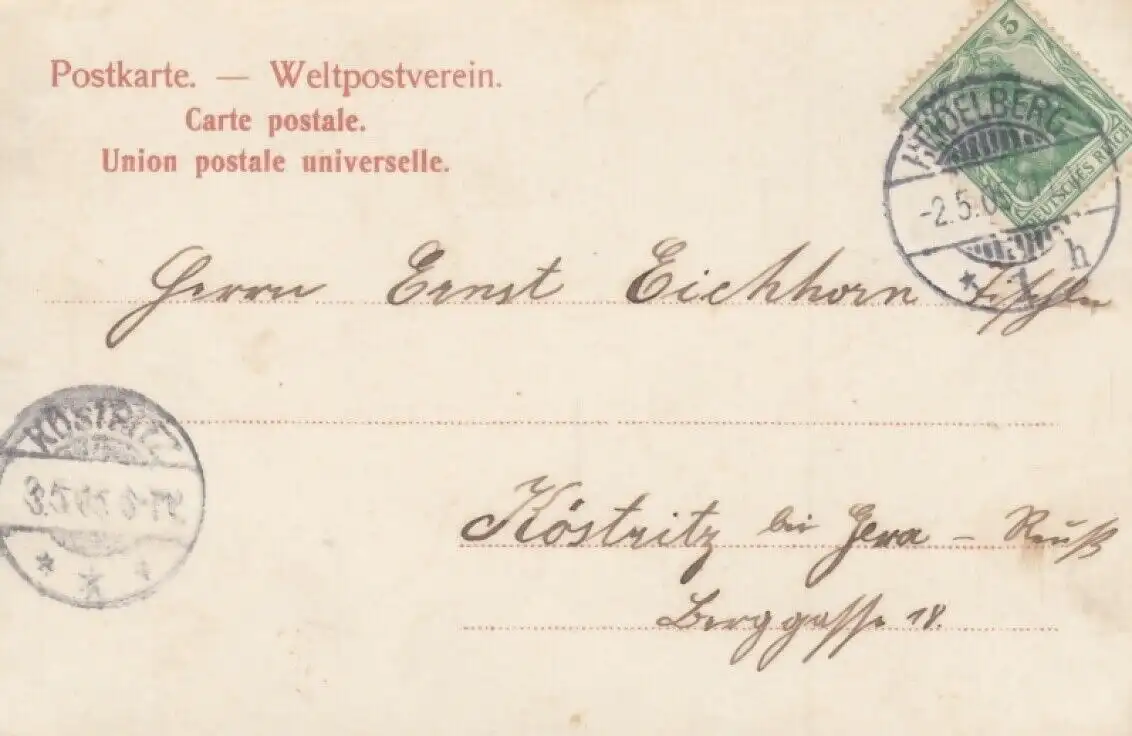 Postkarte. — Weltpostverein.
Carte postale.
Union postale universelle.
5
DEUTSCHES REICH
HEIDELBERG
-2.5.05
1 h
Herrn Ernst Eichhorn Tischler
KÖSTRITZ
Köstritz bei Gera - Reuß
Berggasse 18.